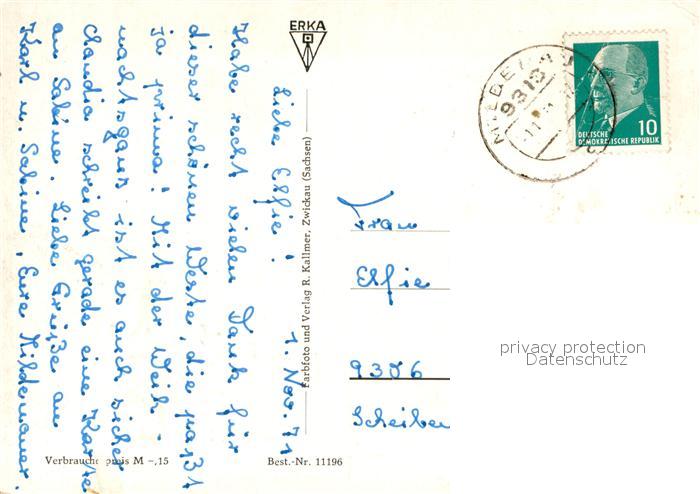 ERKA
Liebe Elfie! 1. Nov. 71
Habe recht vielen Dank für
dieser schönen Weste, die paßt
ja prima! Mit der Weih-
nachtsgans ist es auch sicher
Claudia schreibt gerade eine Karte
an Sabine. Liebe Grüße an
Karl u. Sabine, Eure Hildemauer.
Farbfoto und Verlag R. Kallmer, Zwickau (Sachsen)
Verbraucherpreis M -,15
Best.-Nr. 11196
9313
10
DEUTSCHE
DEMOKRATISCHE REPUBLIK
Frau
Elfie
9306
Scheiben
privacy protection
Datenschutz